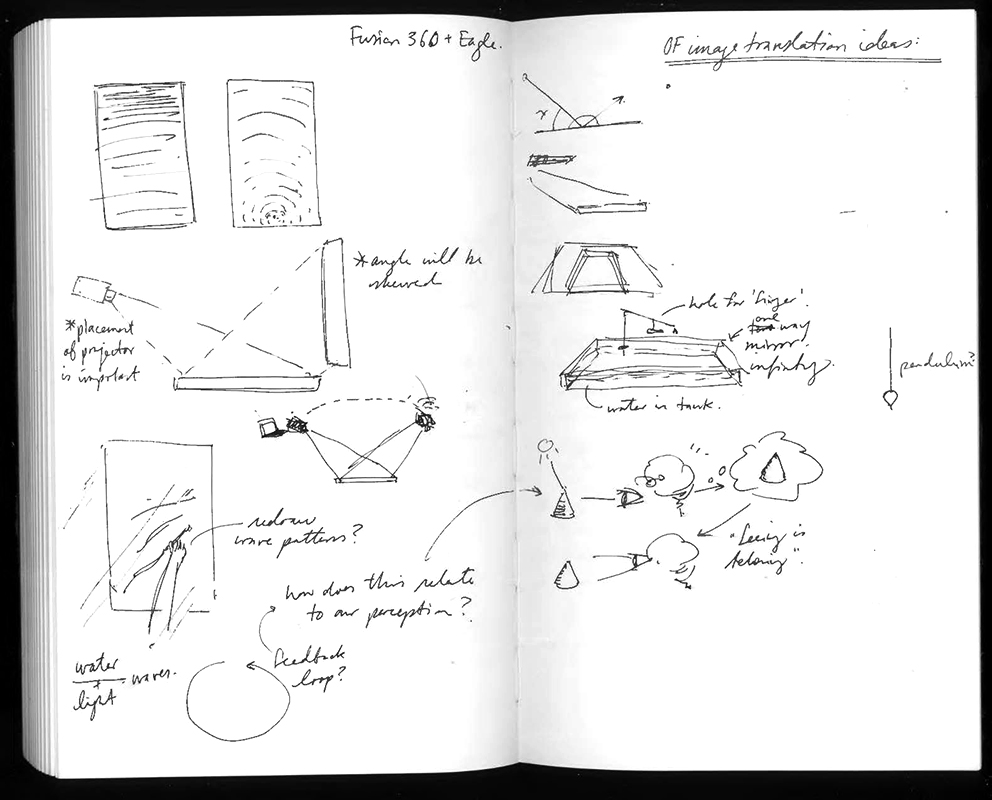 Fusion 360 + Eagle.
*angle will be
skewed
*placement
of projector
is important
redraw
wave patterns?
how does this relate
to our perception?
feedback
loop?
water
+
light
waves.
OF image translation ideas:
r
hole for 'finger'.
one
way
mirror.
infinity.
water in tank.
pendulum?
"Seeing is